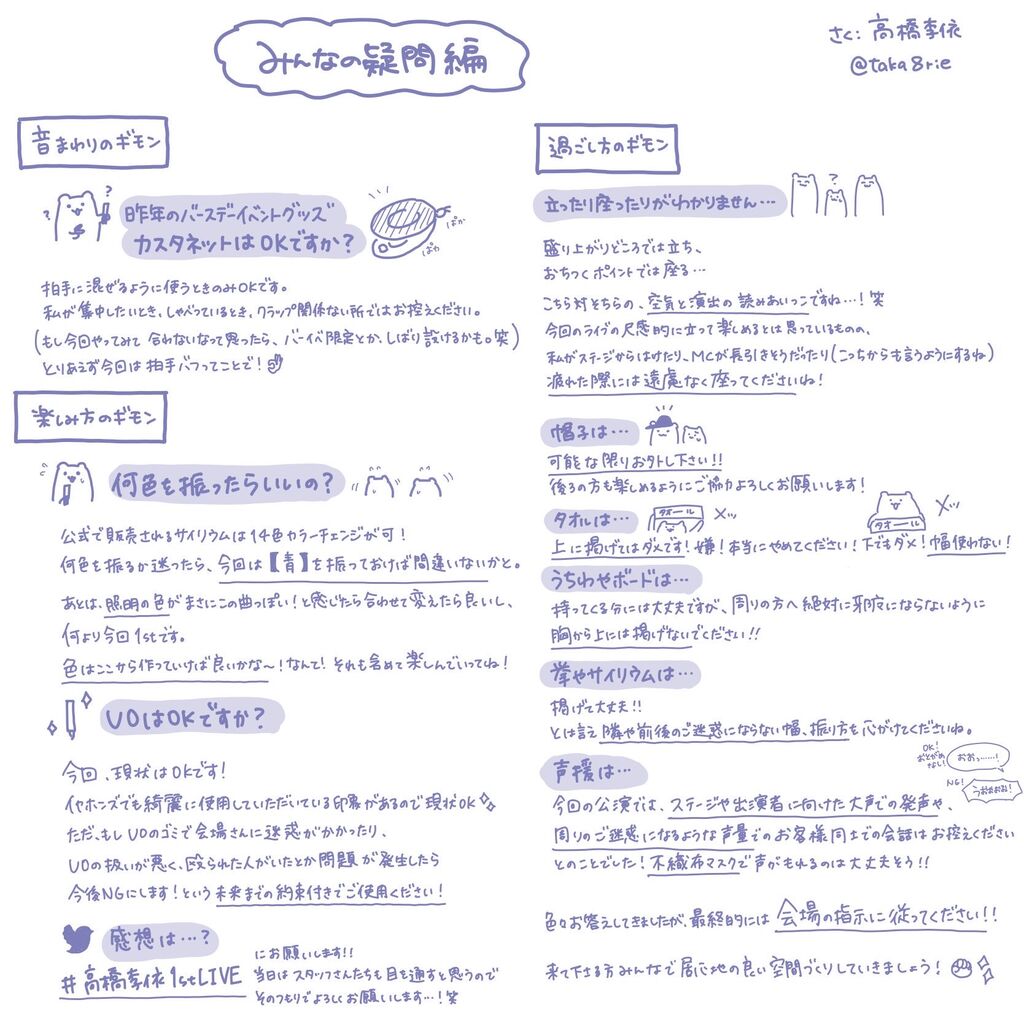 みんなの疑問編
さく:高橋李依
@taka8rie
音まわりのギモン
?
?
昨年のバースデーイベントグッズ
カスタネットはOKですか?
ぱか
ぱか
拍手に混ぜるように使うときのみOKです。
私が集中したいとき、しゃべっているとき、クラップ関係ない所ではお控えください。
(もし今回やってみて合わないなって思ったら、バーイベ限定とか、しばり設けるかも。笑)
とりあえず今回は拍手バフってことで!
楽しみ方のギモン
何色を振ったらいいの?
公式で販売されるサイリウムは14色カラーチェンジが可!
何色を振るか迷ったら、今回は【青】を振っておけば間違いないかと。
あとは、照明の色がまさにこの曲っぽい!と感じたら合わせて変えたら良いし、
何より今回1stです。
色はここから作っていけば良いかな〜!なんて!それも含めて楽しんでいってね!
UOはOKですか?
今回、現状はOKです!
イヤホンズでも綺麗に使用していただいている印象があるので現状OK
ただ、もしUOのゴミで会場さんに迷惑がかかったり、
UOの扱いが悪く、殴られた人がいたとか問題が発生したら
今後NGにします!という未来までの約束付きでご使用ください!
感想は…?
#高橋李依1stLIVE
にお願いします!!
当日はスタッフさんたちも目を通すと思うので
そのつもりでよろしくお願いします…!笑
過ごし方のギモン
立ったり座ったりがわかりません…
?
盛り上がりどころでは立ち、
おちつくポイントでは座る…
こちら対そちらの、空気と演出の読みあいっこですね…!笑
今回のライブの尺感的に立って楽しめるとは思っているものの、
私がステージからはけたり、MCが長引きそうだったり(こっちからも言うようにするね)
疲れた際には遠慮なく座ってくださいね!
帽子は…
可能な限りお外し下さい!!
後ろの方も楽しめるようにご協力よろしくお願いします!
タオルは…
タオール
メッ
タオール
メッ
上に掲げてはダメです!嫌!本当にやめてください!下でもダメ!幅使わない!
うちわやボードは…
持ってくる分には大丈夫ですが、周りの方へ絶対に邪魔にならないように
胸から上には掲げないでください!!
拳やサイリウムは…
掲げて大丈夫!!
とは言え隣や前後のご迷惑にならない幅、振り方を心がけてくださいね。
声援は…
OK!
おとがめなし!
おおっ……!
NG!
うおぉぉぉ!
今回の公演では、ステージや出演者に向けた大声での発声や、
周りのご迷惑になるような声量でのお客様同士での会話はお控えください
とのことでした!不織布マスクで声がもれるのは大丈夫そう!!
色々お答えしてきましたが、最終的には会場の指示に従ってください!!
来て下さる方みんなで居心地の良い空間づくりしていきましょう!